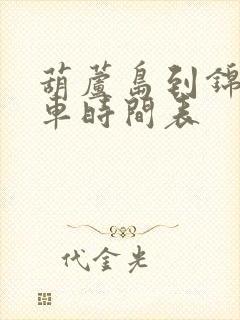 葫蘆島到錦
車時間表
代金光